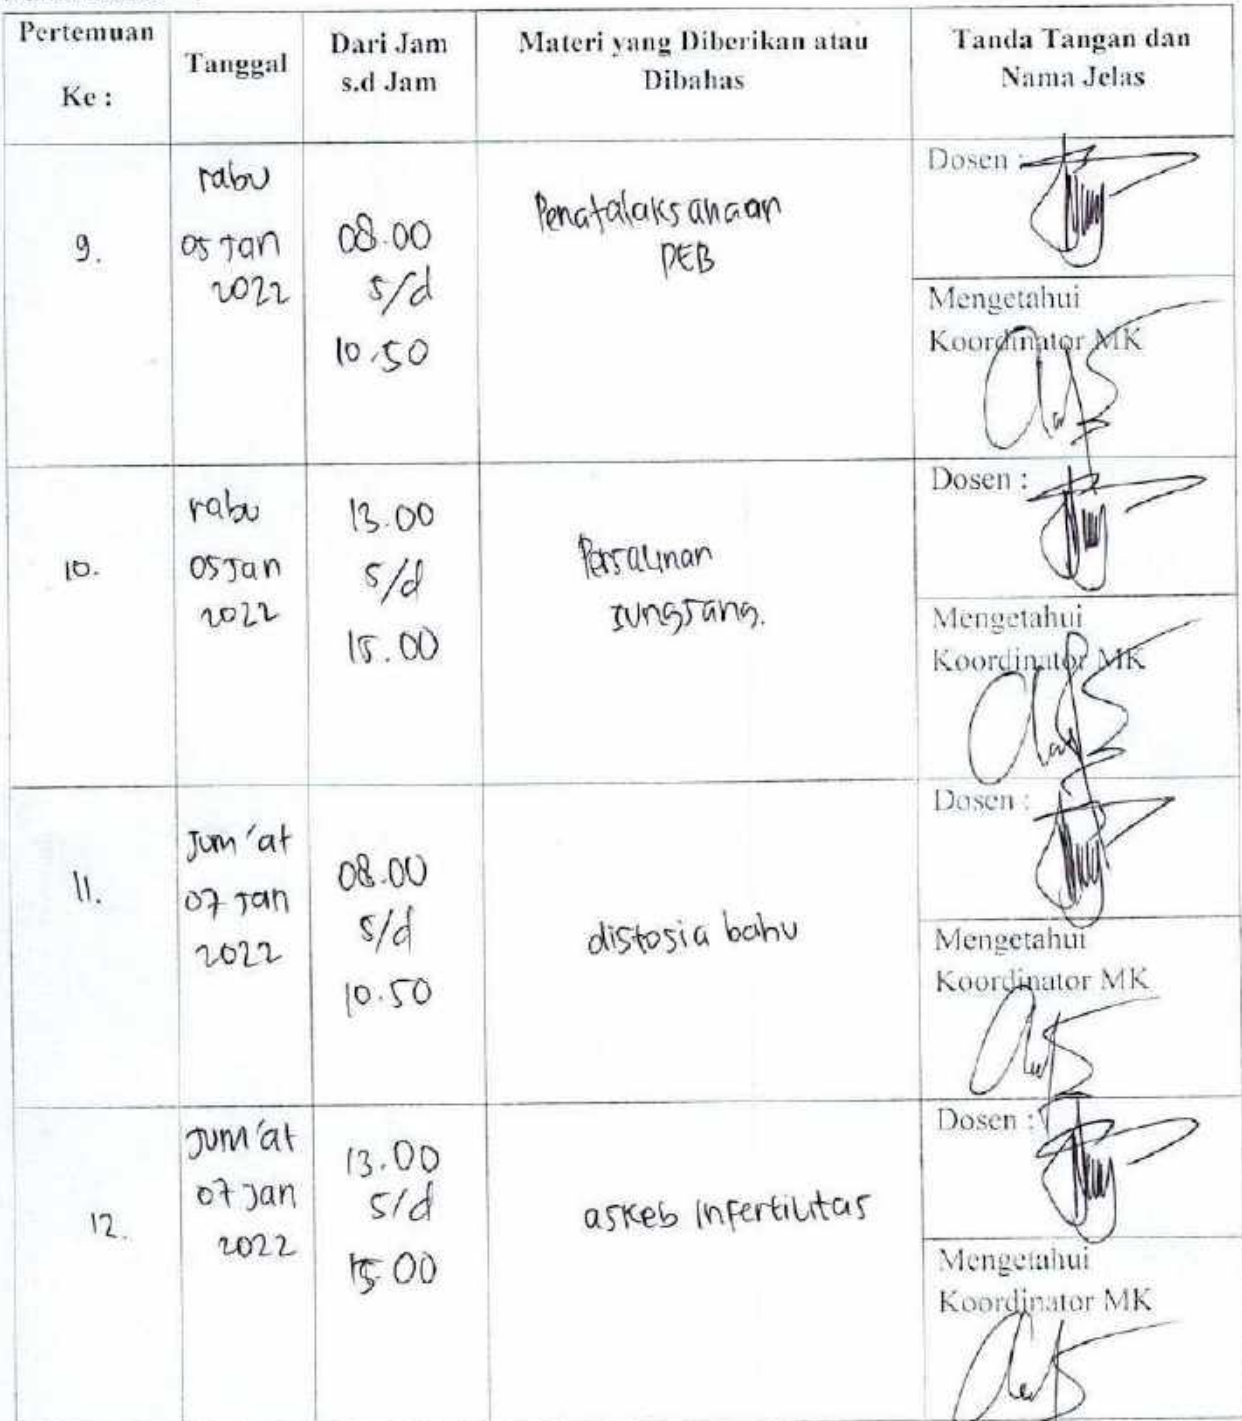 Pertemuan
Ke :
Tanggal
Dari Jam
s.d Jam
Materi yang Diberikan atau
Dibahas
Tanda Tangan dan
Nama Jelas
9.
rabu
05 Jan
2022
08.00
s/d
10.50
Penatalaksanaan
PEB
Dosen :
Mengetahui
Koordinator MK
10.
rabu
05 Jan
2022
13.00
s/d
15.00
Persalinan
sungsang.
Dosen :
Mengetahui
Koordinator MK
11.
Jum'at
07 Jan
2022
08.00
s/d
10.50
distosia bahu
Dosen :
Mengetahui
Koordinator MK
12.
Jum'at
07 Jan
2022
13.00
s/d
15.00
askeb infertilitas
Dosen :
Mengetahui
Koordinator MK